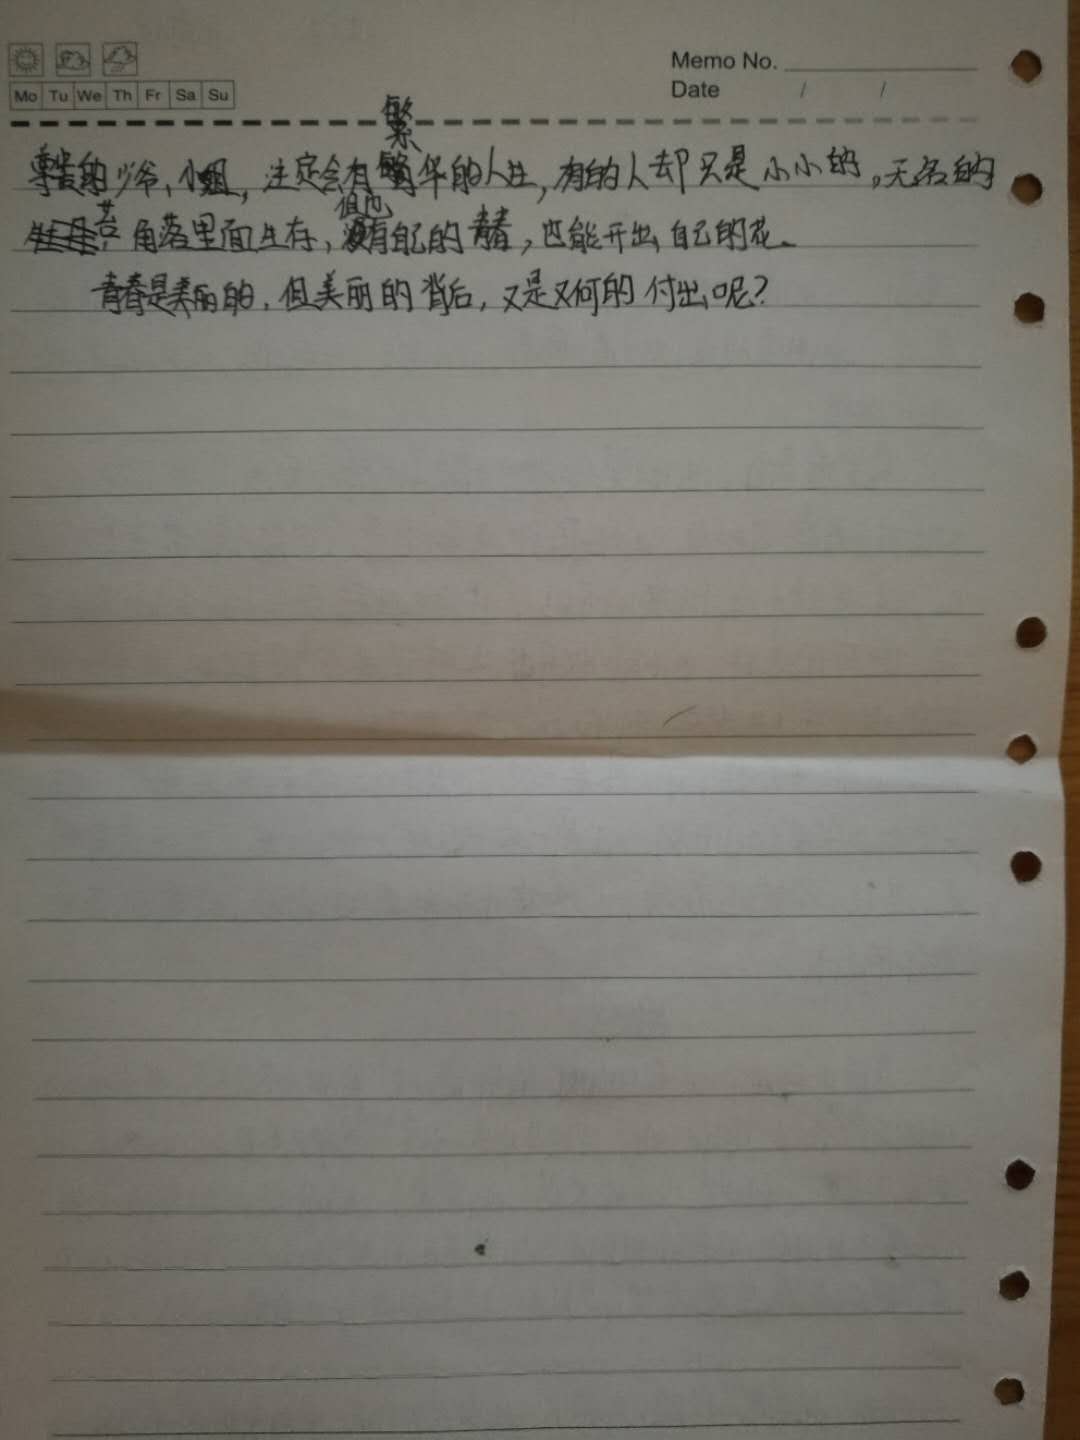 Memo No.
Date / /
Mo Tu We Th Fr Sa Su
繁
尊贵的少爷,小姐,注定会有繁华的人生,有的人却只是小小的。无名的
苔 但也
角落里面生存,没有自己的青春,也能开出自己的花。
青春是美丽的,但美丽的背后,又是又何的付出呢?